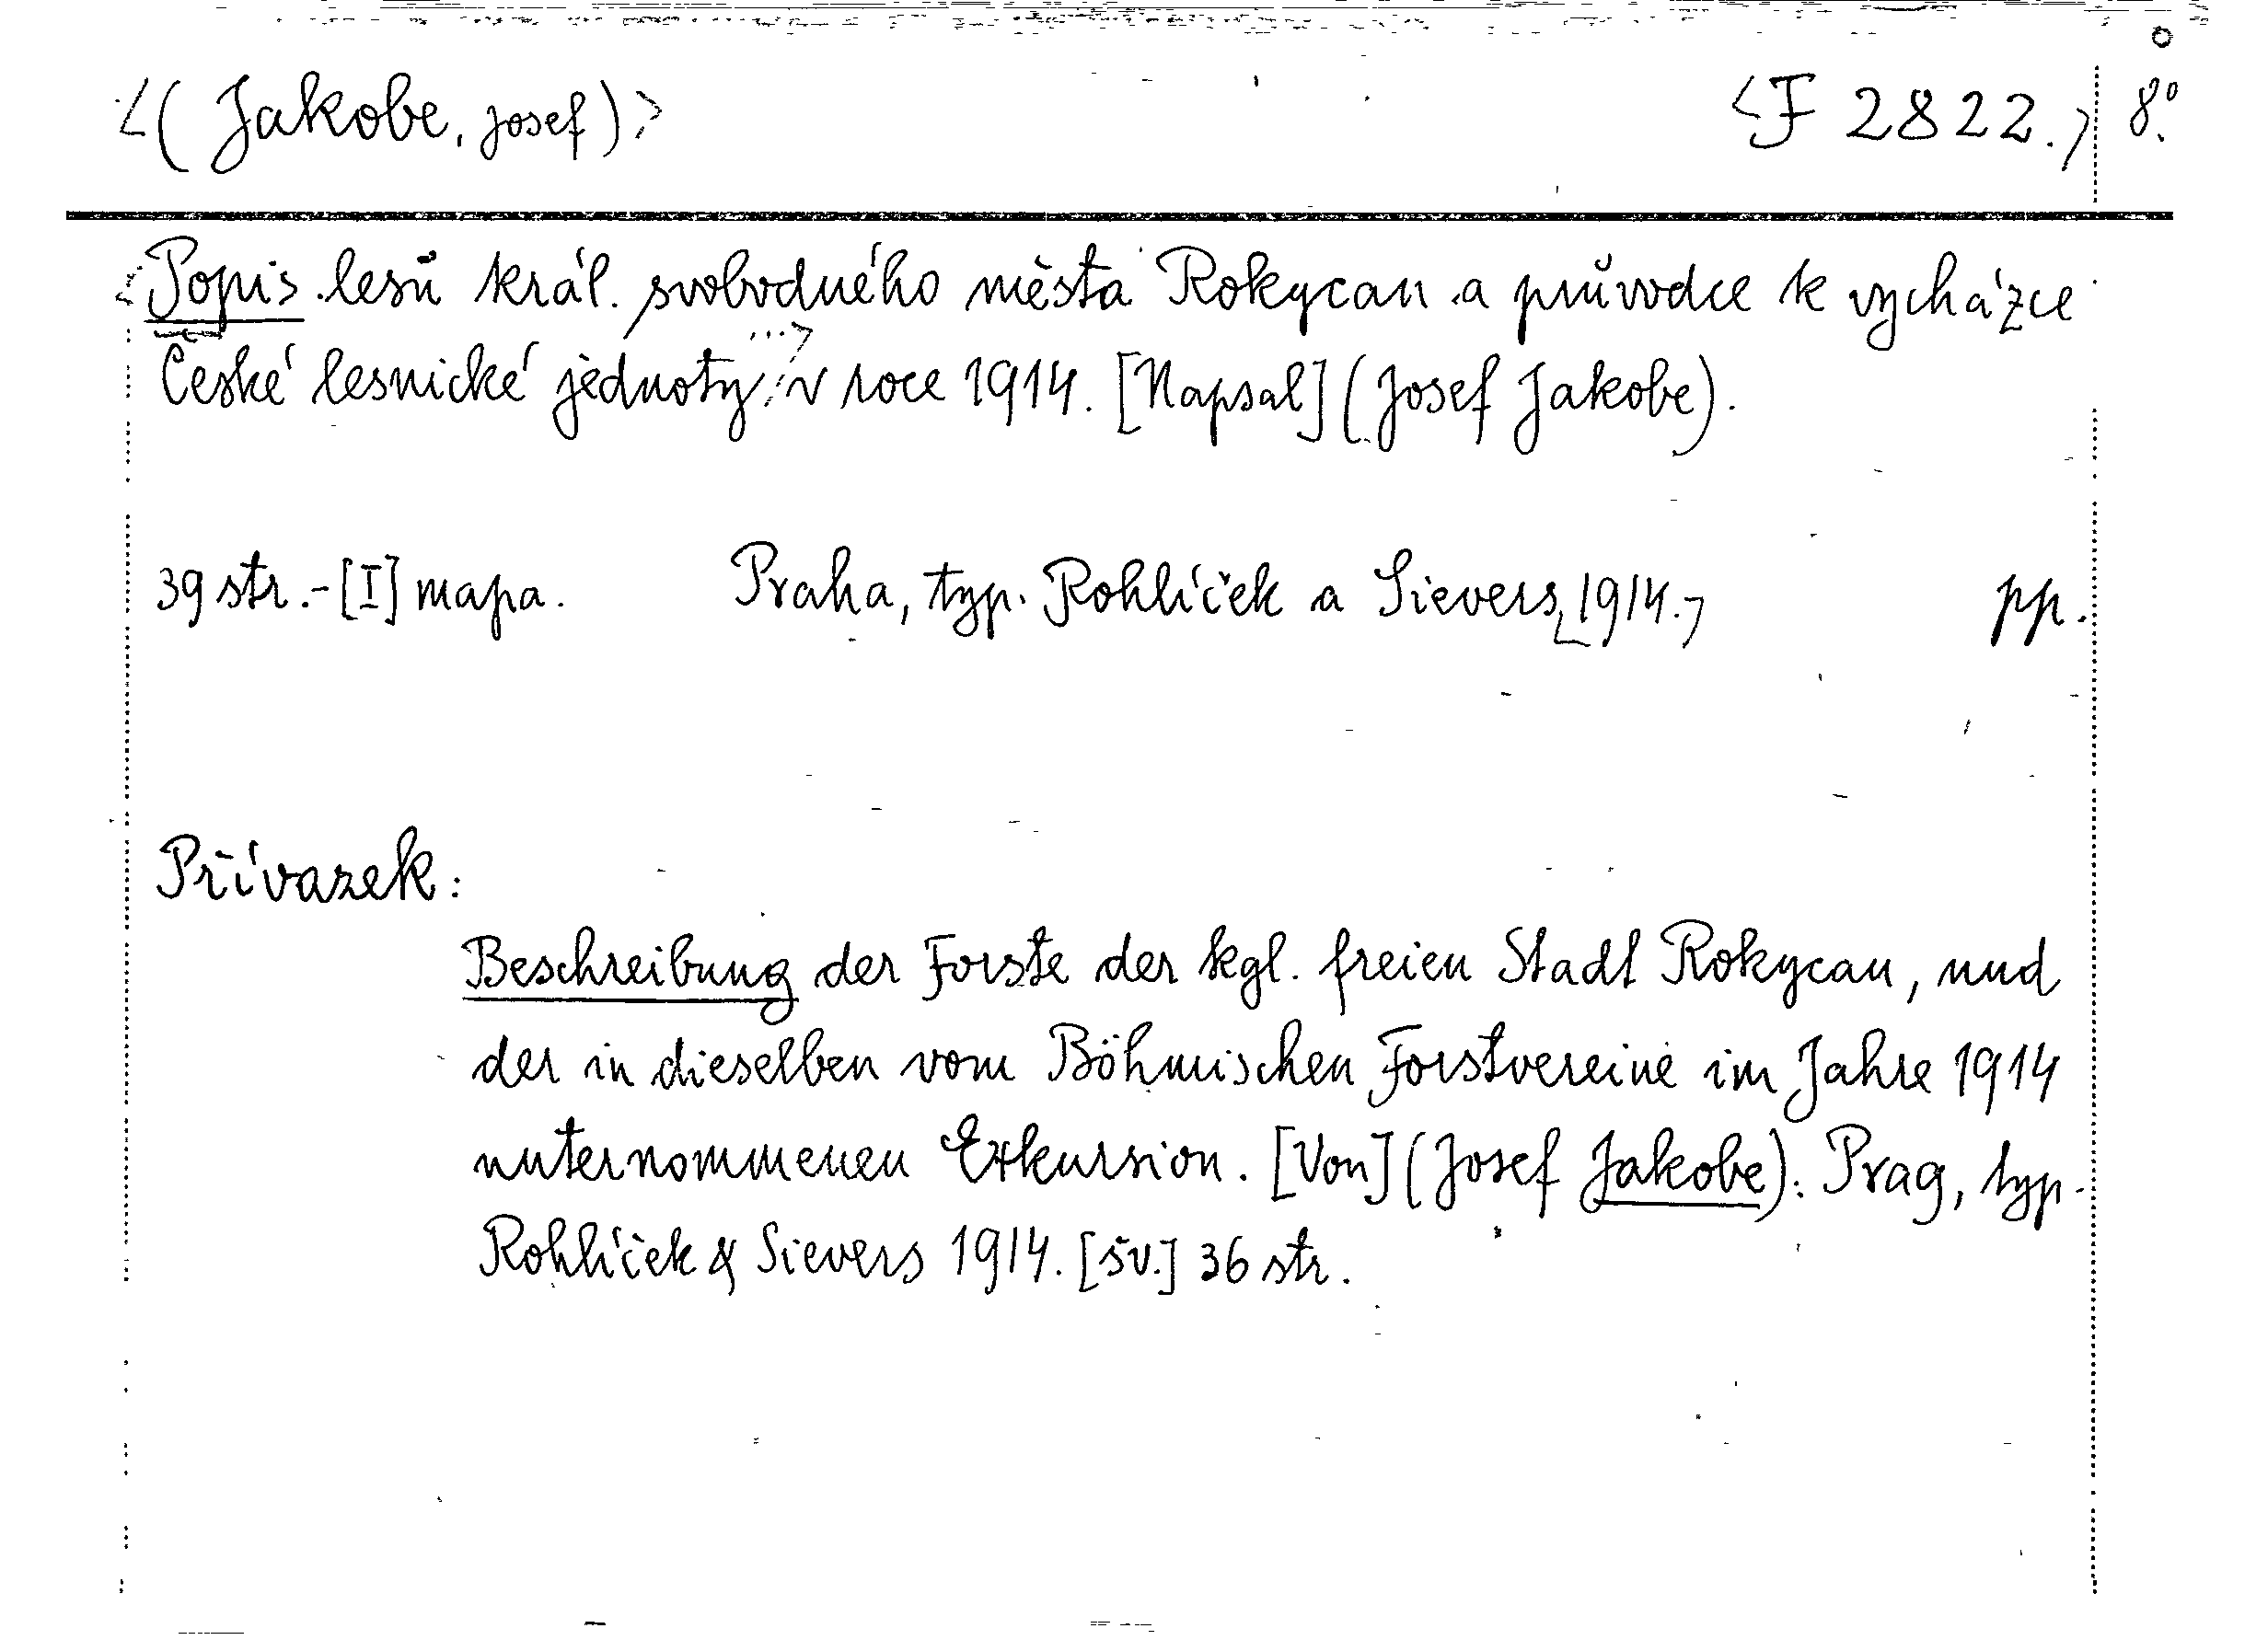 <(Jakobe, Josef)> <F 2822.> 8°.
<Popis lesů král. svobodného města Rokycan a průvodce k vycházce
České lesnické jednoty ...> v roce 1914. [Napsal] (Josef Jakobe).
39 str.-[I] mapa. Praha, typ. Rohlíček a Sievers <1914.> pp.
Přívazek:
Beschreibung der Forste der kgl. freien Stadt Rokycan, und
der in dieselben vom Böhmischen Forstvereine im Jahre 1914
unternommenen Exkursion. [Von] (Josef Jakobe). Prag, typ.
Rohlíček & Sievers 1914. [sv.] 36 str.